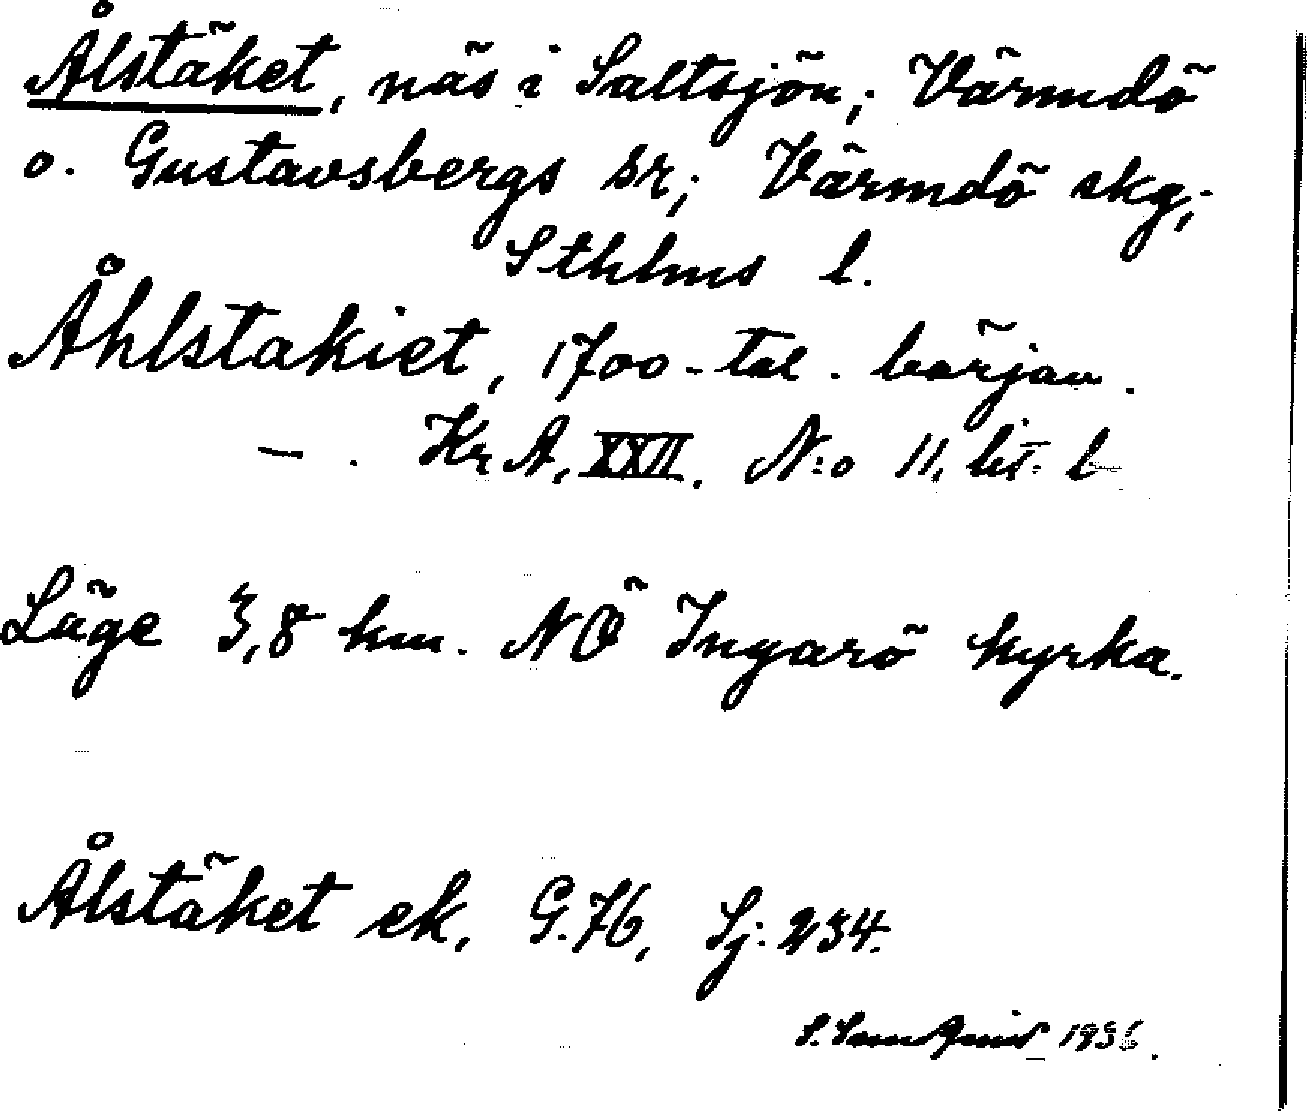 Ålstäket, näs i Saltsjön; Värmdö
o. Gustavsbergs sr; Värmdö skg;
Sthlms l.
Åhlstakiet, 1700-tal. början.
— . Kr A, XXII. N:o 11, lit. b
Läge 3,8 km. NÖ Ingarö kyrka.
Ålstäket ek, G.76, Sj: 234.
S. 1936.